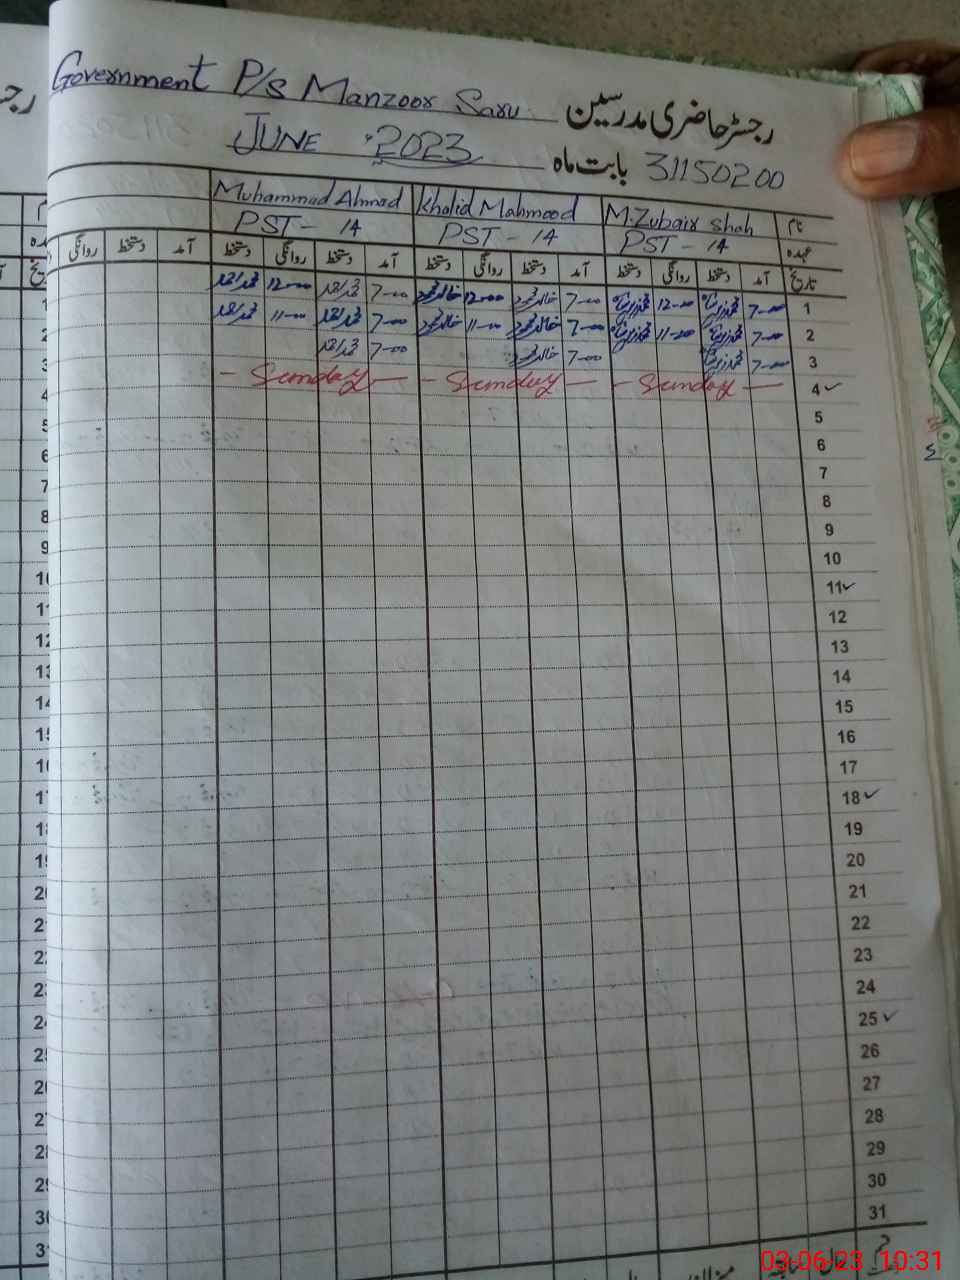 Government P/s Manzoor Saru رجسٹر حاضری مدرسین
JUNE 2023 بابت ماہ 31150200
نام M.Zubair shah Khalid Mahmood Muhammad Ahmad
عہدہ PST - 14 PST - 14 PST - 14
تاریخ آمد دستخط روانگی دستخط آمد دستخط روانگی دستخط آمد دستخط روانگی دستخط آمد دستخط روانگی
1 7-00 12-00 7-00 خالد محمود 12-00 خالد محمود 7-00 محمد احمد 12-00 محمد احمد
2 7-00 11-00 7-00 خالد محمود 11-00 خالد محمود 7-00 محمد احمد 11-00 محمد احمد
3 7-00 7-00 خالد محمود 7-00 محمد احمد
4 ✓ - Sunday - - Sunday - - Sunday -
5
6
7
8
9
10
11 ✓
12
13
14
15
16
17
18 ✓
19
20
21
22
23
24
25 ✓
26
27
28
29
30
31
03-06-23 10:31